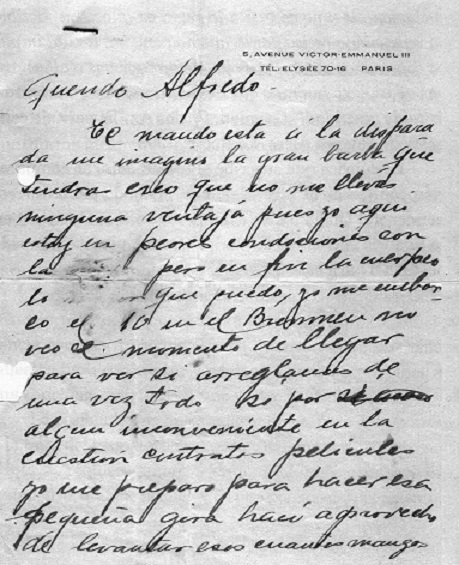 5, AVENUE VICTOR-EMMANUEL III
TÉL. ELYSÉE 70-16 PARIS
Querido Alfredo
Te mando esta a la dispara
da me imagino la gran barba que
tendras creo que no me llevás
ninguna ventaja pues yo aqui
estoy en peores condiciones con
la pero en fin la cuerpeo
lo que puedo, yo me embar
co el 10 en el no
veo el momento de llegar
para ver si arreglamos de
una vez todo si por
algun inconveniente en la
cuestion contratos peliculas
yo me preparo para hacer esa
pequeña gira haci aprovecho
de levantar esos cuantos mangos